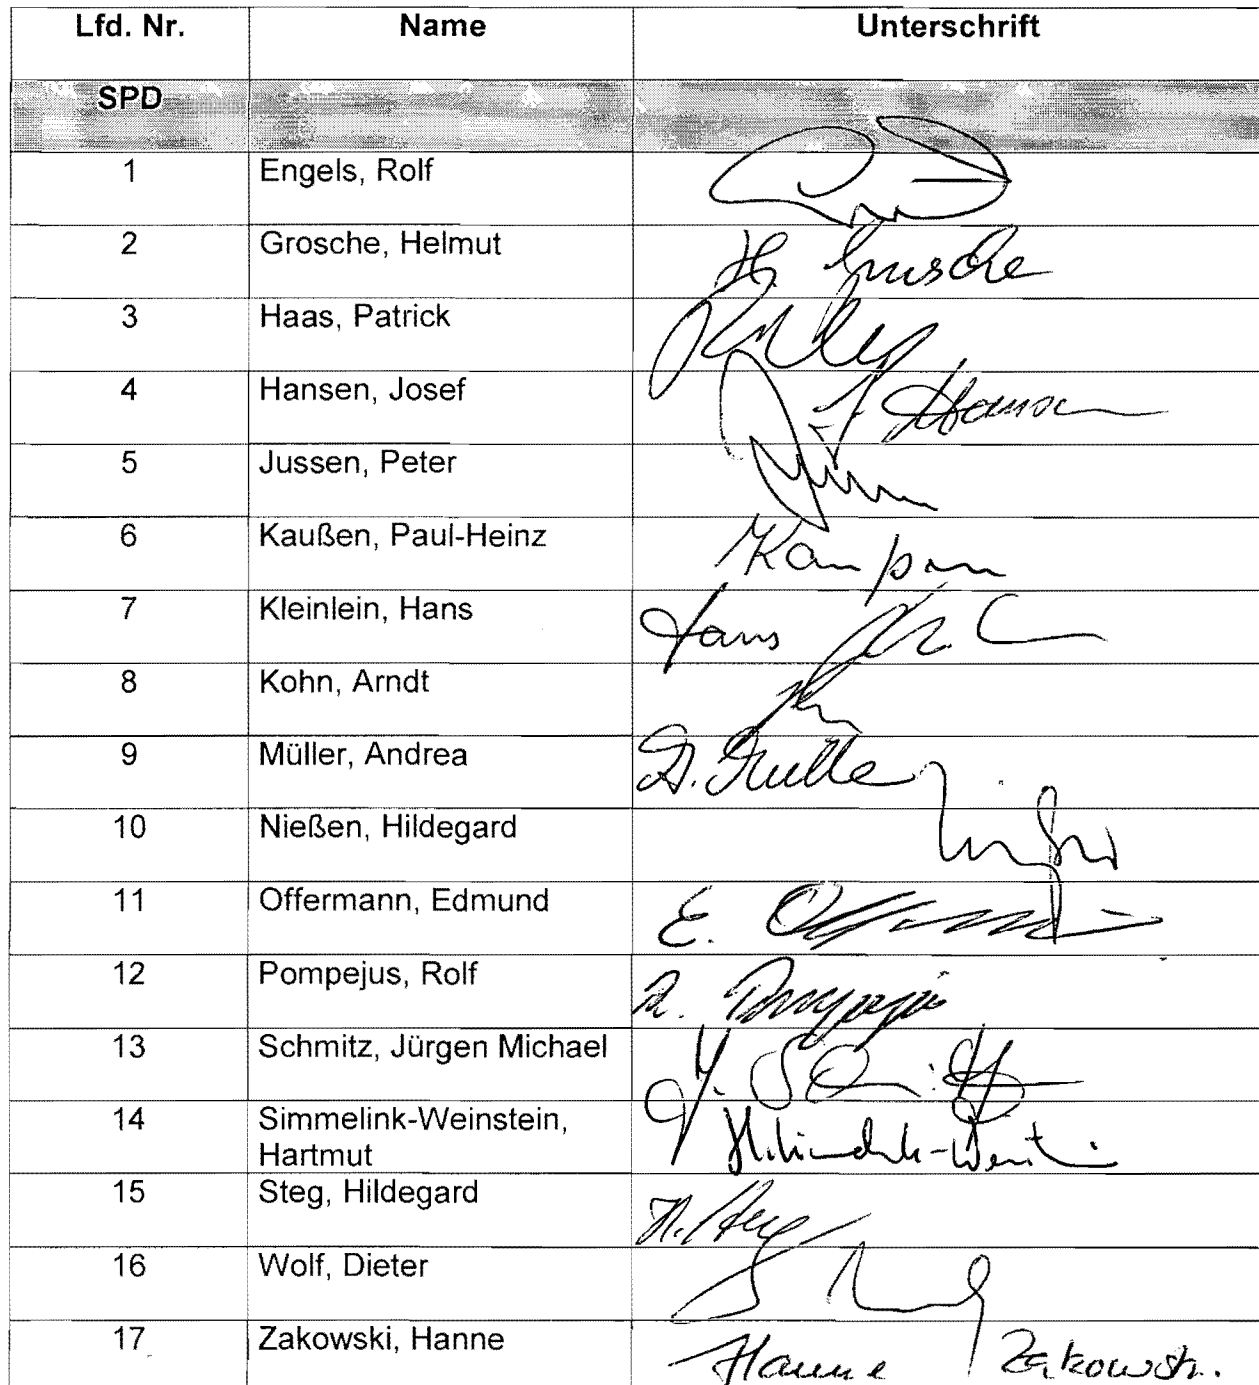 Lfd. Nr. Name Unterschrift
SPD
1 Engels, Rolf
2 Grosche, Helmut H. Grosche
3 Haas, Patrick
4 Hansen, Josef J. Hansen
5 Jussen, Peter
6 Kaußen, Paul-Heinz Kaußen
7 Kleinlein, Hans Hans
8 Kohn, Arndt
9 Müller, Andrea A. Müller
10 Nießen, Hildegard
11 Offermann, Edmund E. Offermann
12 Pompejus, Rolf R. Pompejus
13 Schmitz, Jürgen Michael
14 Simmelink-Weinstein,
Hartmut
15 Steg, Hildegard H. Steg
16 Wolf, Dieter
17 Zakowski, Hanne Hanne Zakowski